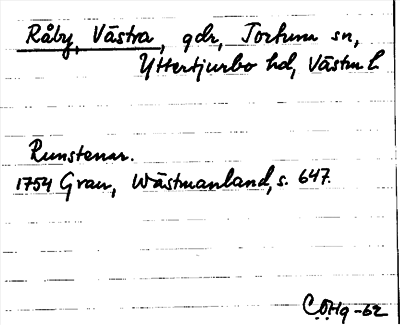 Råby, Västra, gdr, Tortuna sn,
Yttertjurbo hd, Västm l.
Runstenar.
1754 Grau, Wästmanland, s. 647.
COHg -62